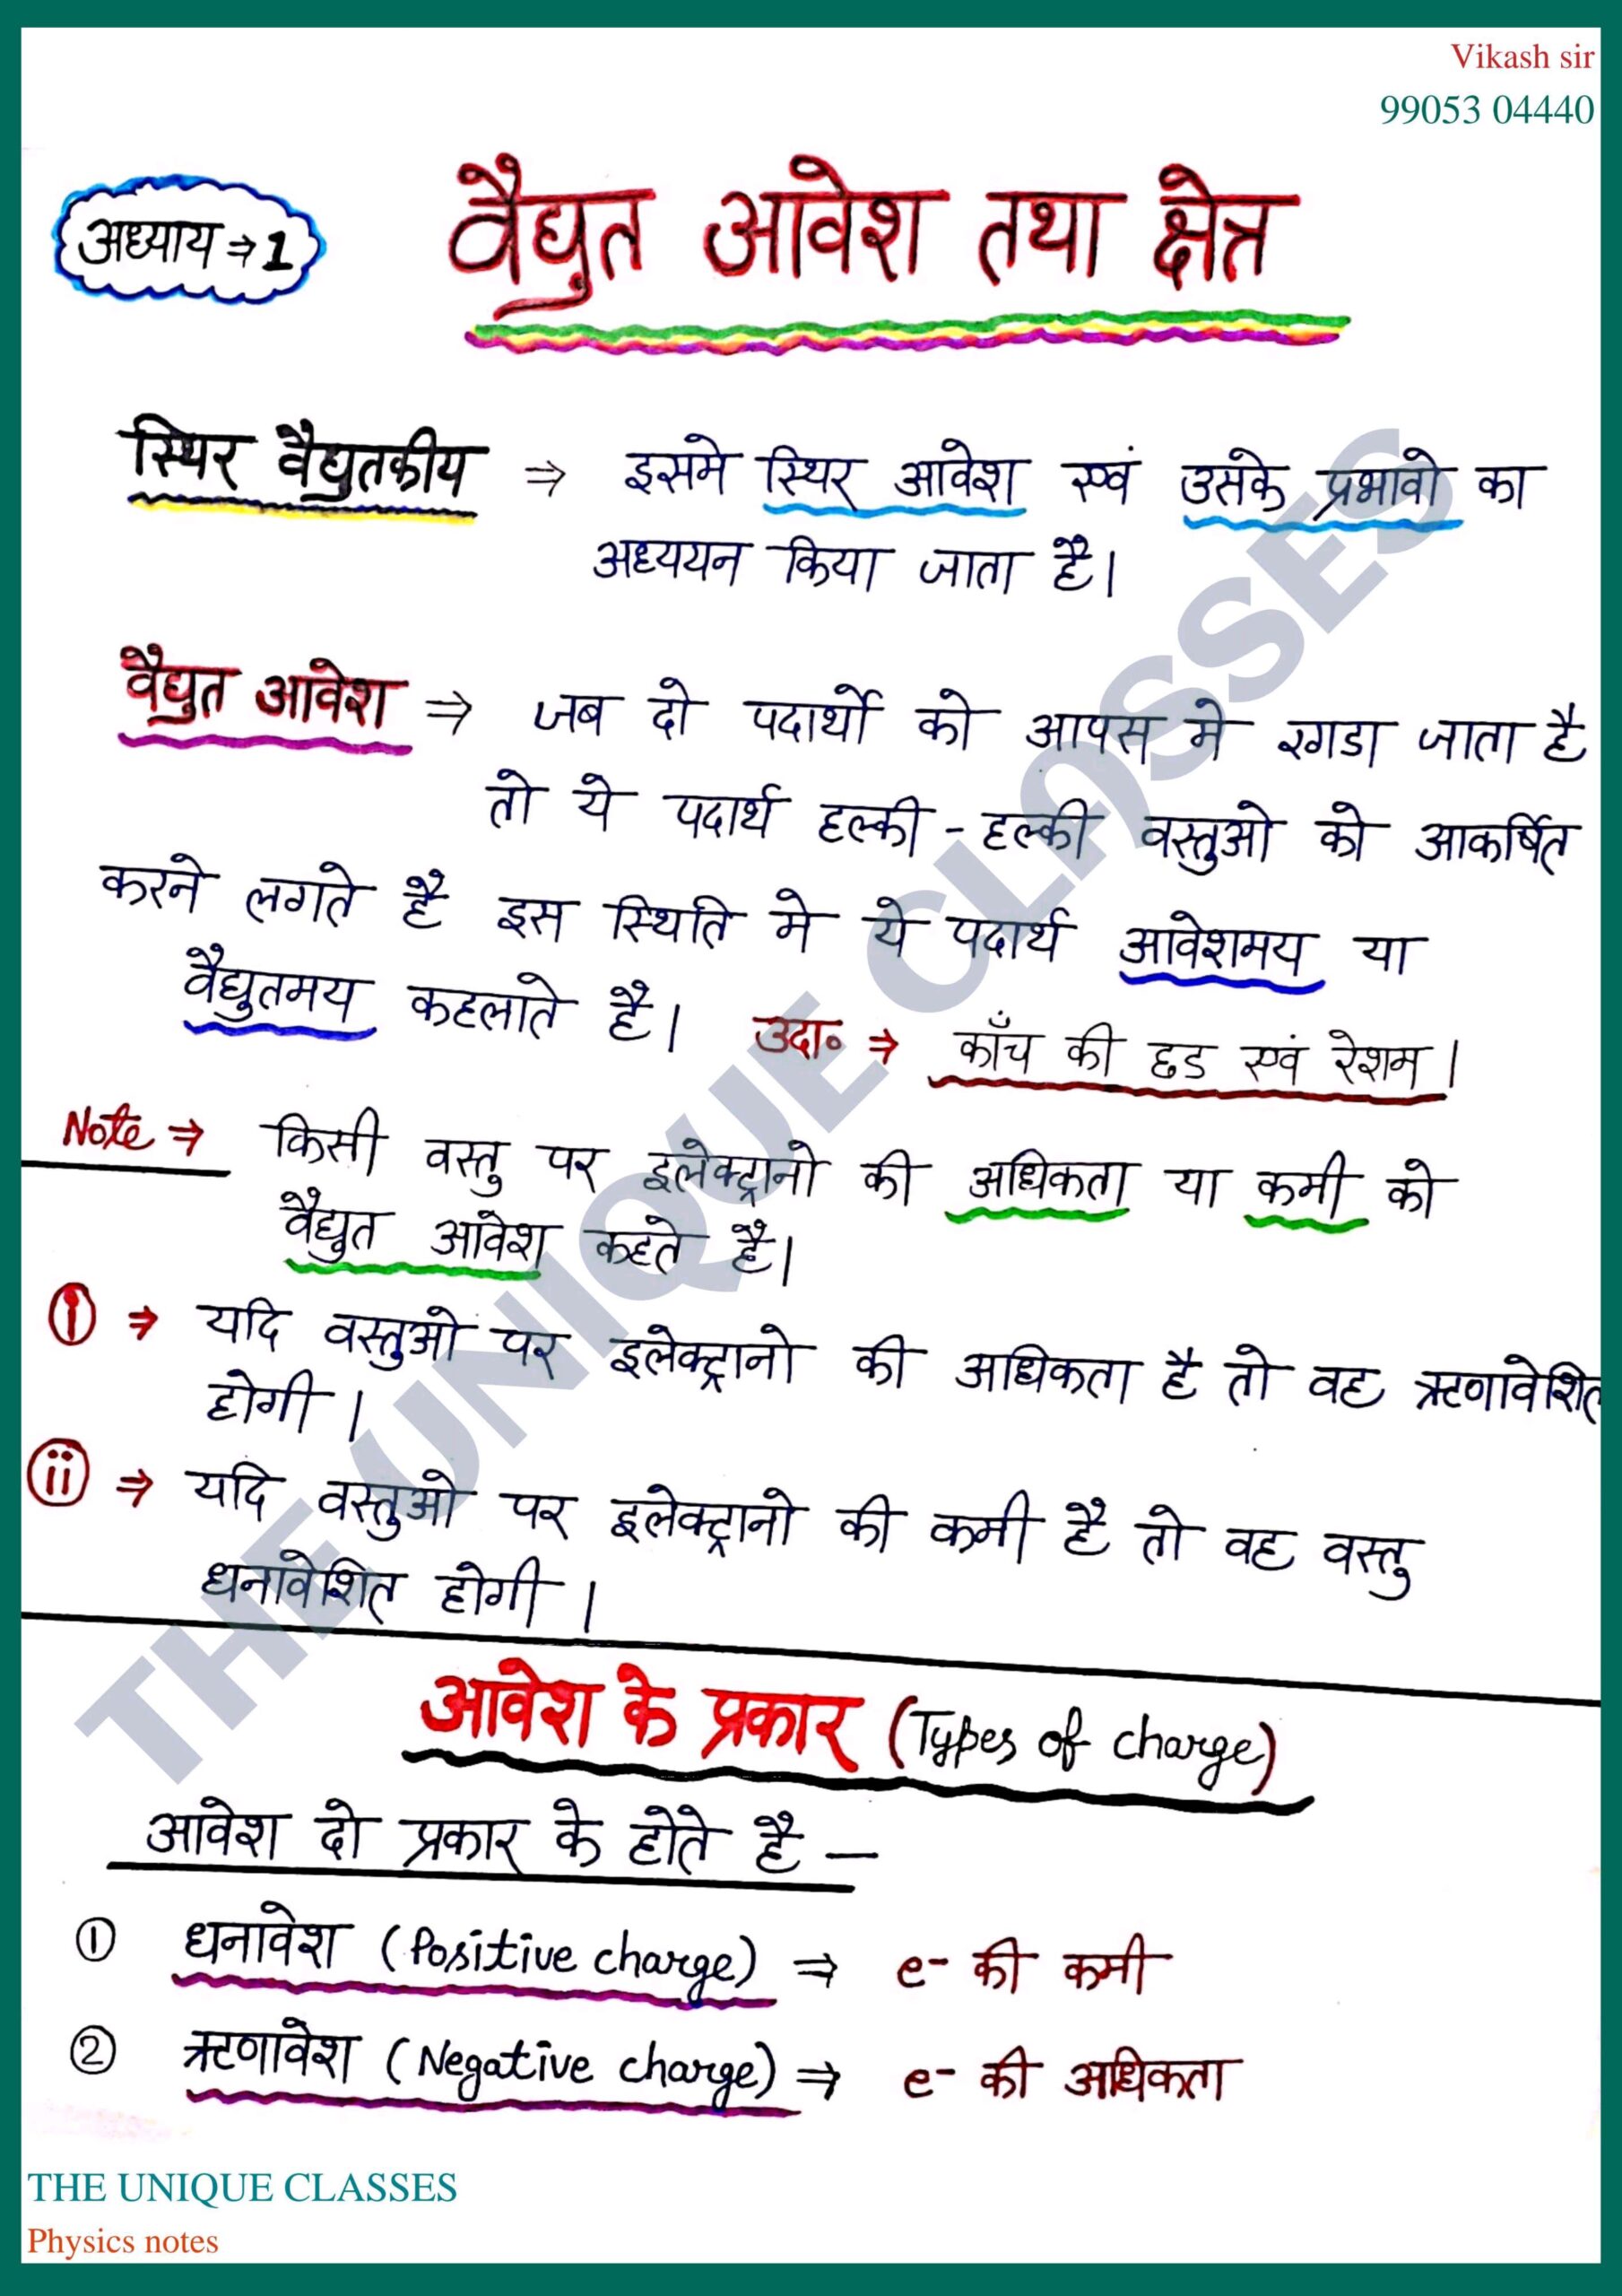 Vikash sir
99053 04440
अध्याय ⇒ 1
वैद्युत आवेश तथा क्षेत्र
स्थिर वैद्युतकीय ⇒ इसमे स्थिर आवेश एवं उसके प्रभावो का
अध्ययन किया जाता है।
वैद्युत आवेश ⇒ जब दो पदार्थो को आपस मे रगडा जाता है
तो ये पदार्थ हल्की - हल्की वस्तुओ को आकर्षित
करने लगते है इस स्थिति मे ये पदार्थ आवेशमय या
वैद्युतमय कहलाते है। उदा० ⇒ काँच की छड एवं रेशम।
Note ⇒ किसी वस्तु पर इलेक्ट्रानो की अधिकता या कमी को
वैद्युत आवेश कहते है।
i ⇒ यदि वस्तुओ पर इलेक्ट्रानो की अधिकता है तो वह ऋणावेशित
होगी।
ii ⇒ यदि वस्तुओ पर इलेक्ट्रानो की कमी है तो वह वस्तु
धनावेशित होगी।
आवेश के प्रकार (Types of charge)
आवेश दो प्रकार के होते है —
① धनावेश (Positive charge) ⇒ e- की कमी
② ऋणावेश (Negative charge) ⇒ e- की अधिकता
THE UNIQUE CLASSES
Physics notes
THE UNIQUE CLASSES